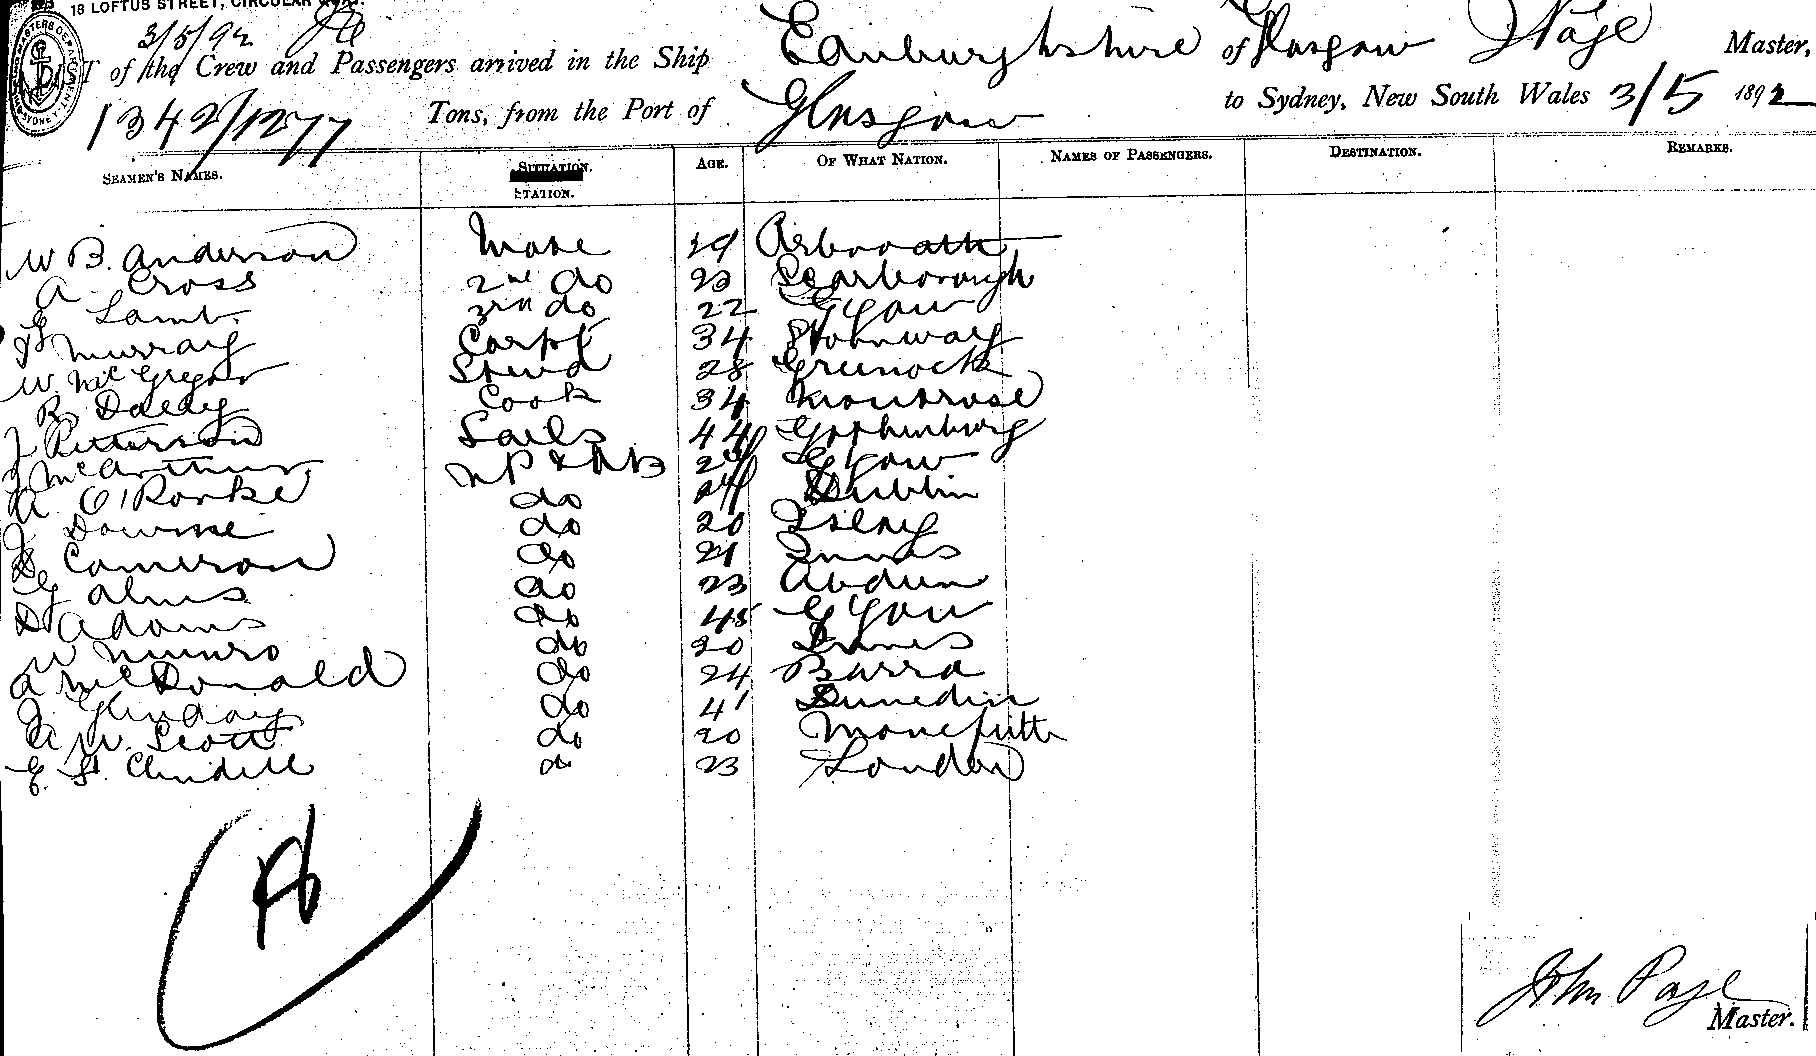 18 LOFTUS STREET, CIRCULAR
3/5/92
of the Crew and Passengers arrived in the Ship Edinburghshire of Glasgow J Page Master,
1342/1277 Tons, from the Port of Glasgow to Sydney, New South Wales 3/5 1892
SEAMEN'S NAMES. SITUATION. STATION. AGE. OF WHAT NATION. NAMES OF PASSENGERS. DESTINATION. REMARKS.
W B. Anderson Mate 29 Arbroath
A Cross 2nd do 23 Scarborough
Lamb 3rd do 22 Glgow
Murray Carpt 34 Stornway
W McGregor Stewd 28 Greenock
R Dalley Cook 34 Montrose
J Petterson Sails 44 Gothenburg
J McArthur AB 24 Glgow
A O'Rorke do 24 Dublin
J Downie do 20 Islay
D Cameron do 21
G Alms do 23 Abdeen
D Adams do 45 Glgow
W Munro do 20
A McDonald do 24 Barra
J. do 41 Dunedin
A W. Scott do 20
E. St. do 23 London
18
John Page
Master.